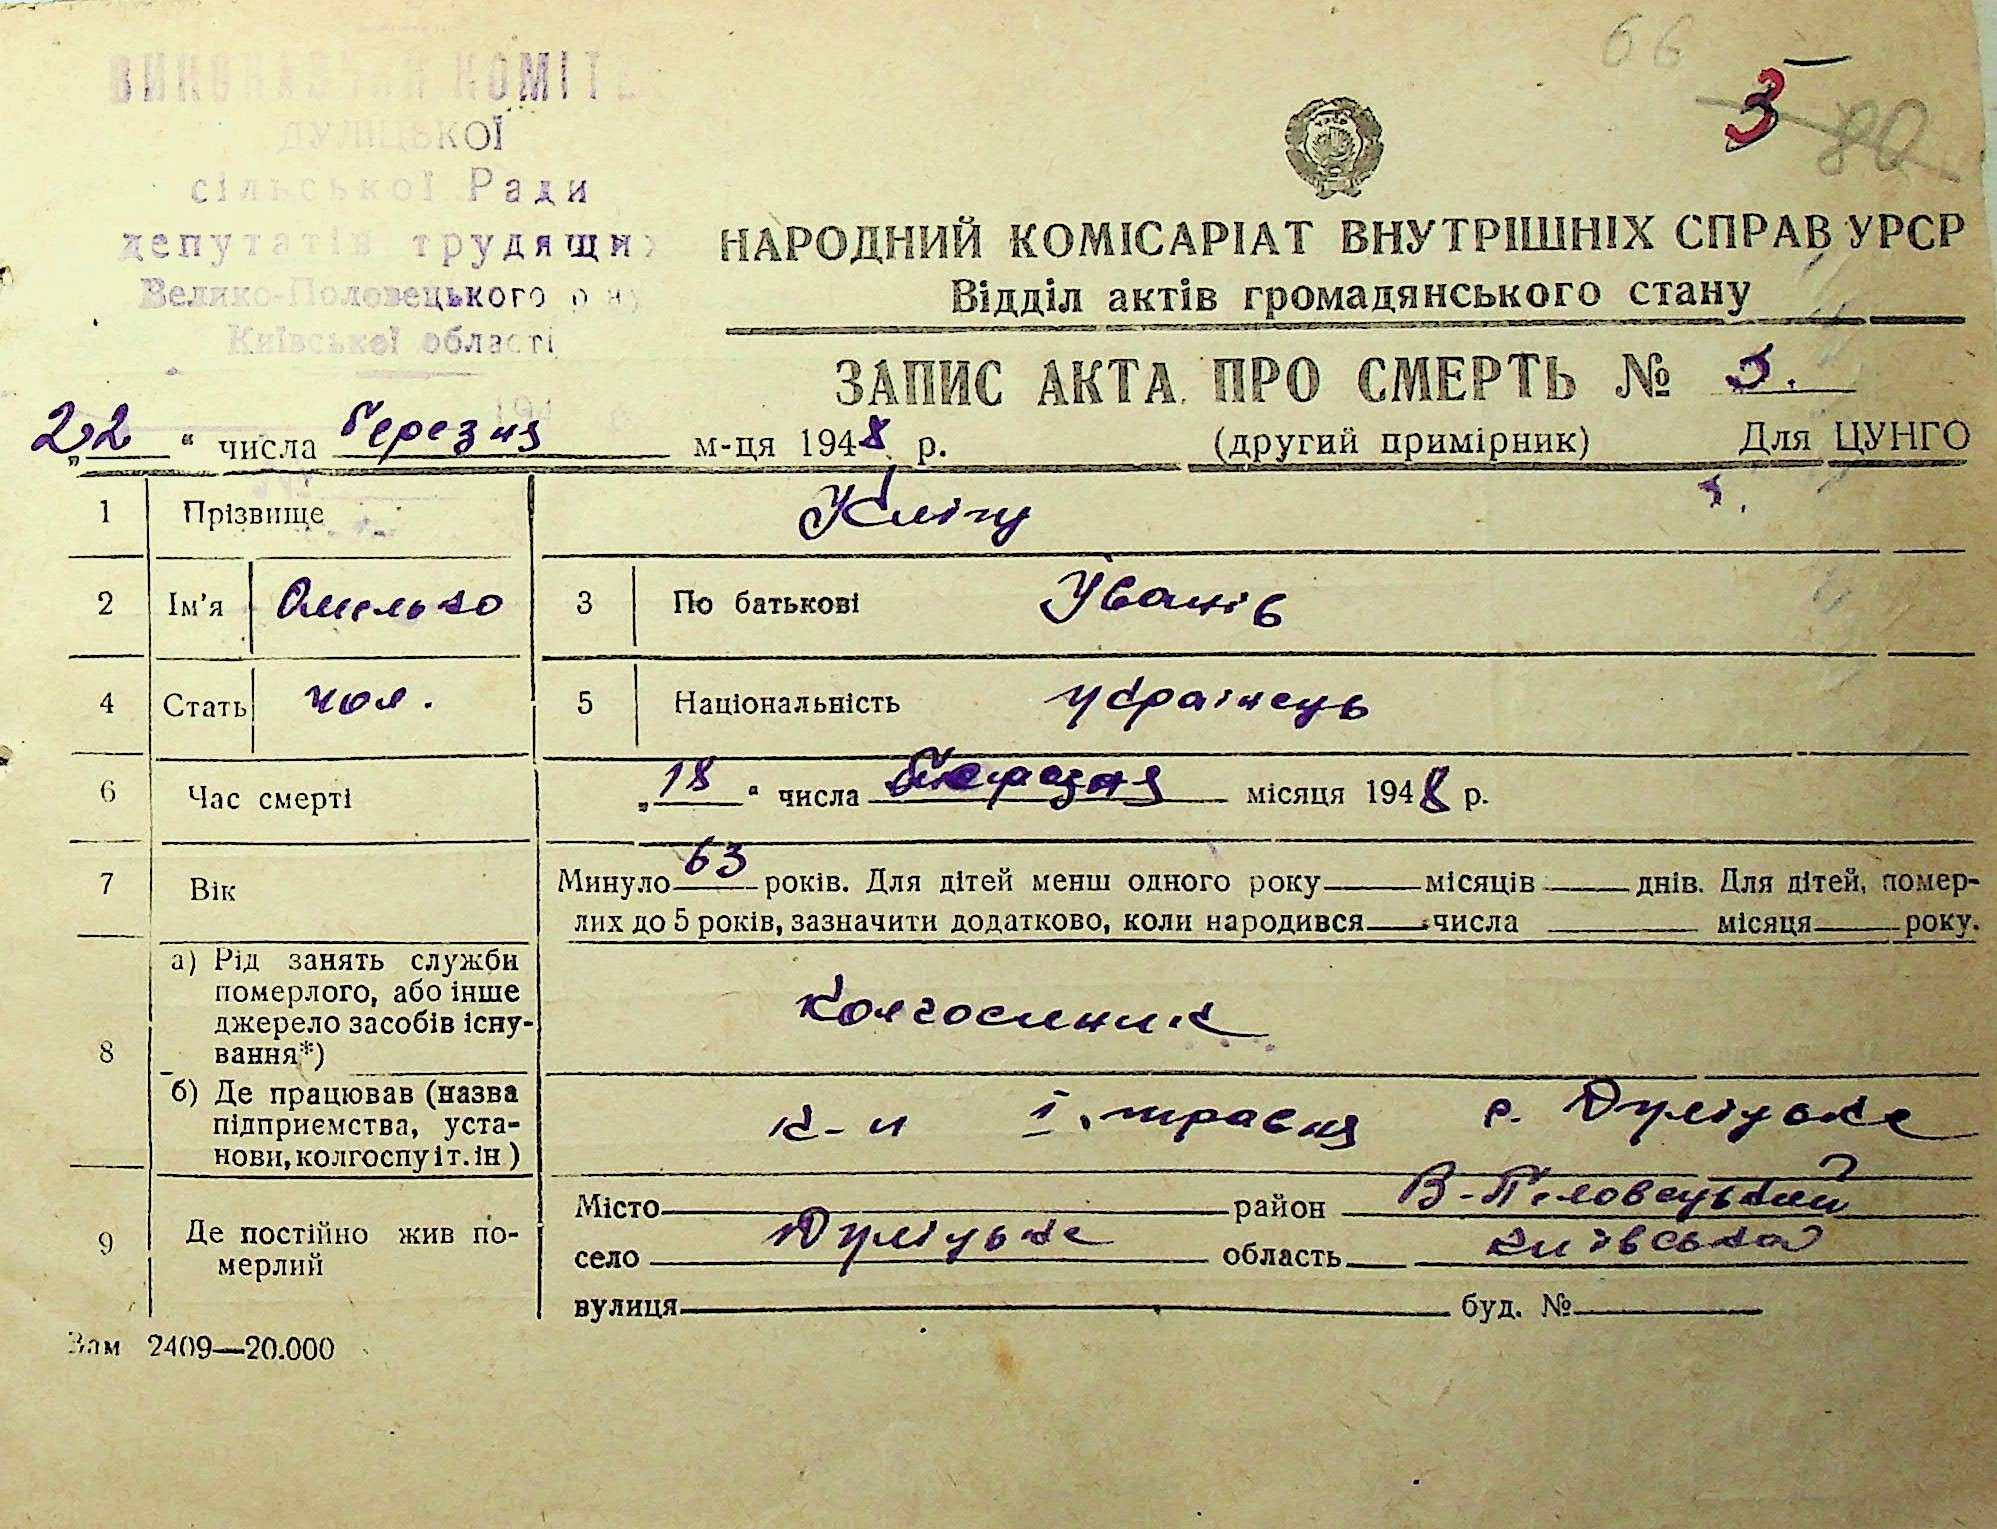 66
3
80
ВИКОНАВЧИЙ КОМІТЕ
ДУЛІЦЬКОЇ
сільської Ради
депутатів трудящих
Велико-Половецького р-ну
Київської області
НАРОДНИЙ КОМІСАРІАТ ВНУТРІШНІХ СПРАВ УРСР
Відділ актів громадянського стану
ЗАПИС АКТА ПРО СМЕРТЬ № 3.
„22“ числа березня м-ця 1948 р. (другий примірник) Для ЦУНГО
1 Прізвище
2 Ім'я Омелько 3 По батькові Іванів
4 Стать чол. 5 Національність українець
6 Час смерті „18“ числа березня місяця 1948 р.
7 Вік Минуло 63 років. Для дітей менш одного року місяців днів. Для дітей, помер-
лих до 5 років, зазначити додатково, коли народився числа місяця року.
8 а) Рід занять служби
померлого, або інше
джерело засобів існу-
вання*)
колгоспник
б) Де працював (назва
підприємства, уста-
нови, колгоспу і т. ін)
к-п І. травня с. Дуліцьке
9 Де постійно жив по-
мерлий
Місто район В-Половецький
село Дуліцьке область київська
вулиця буд. №
Зам 2409—20.000